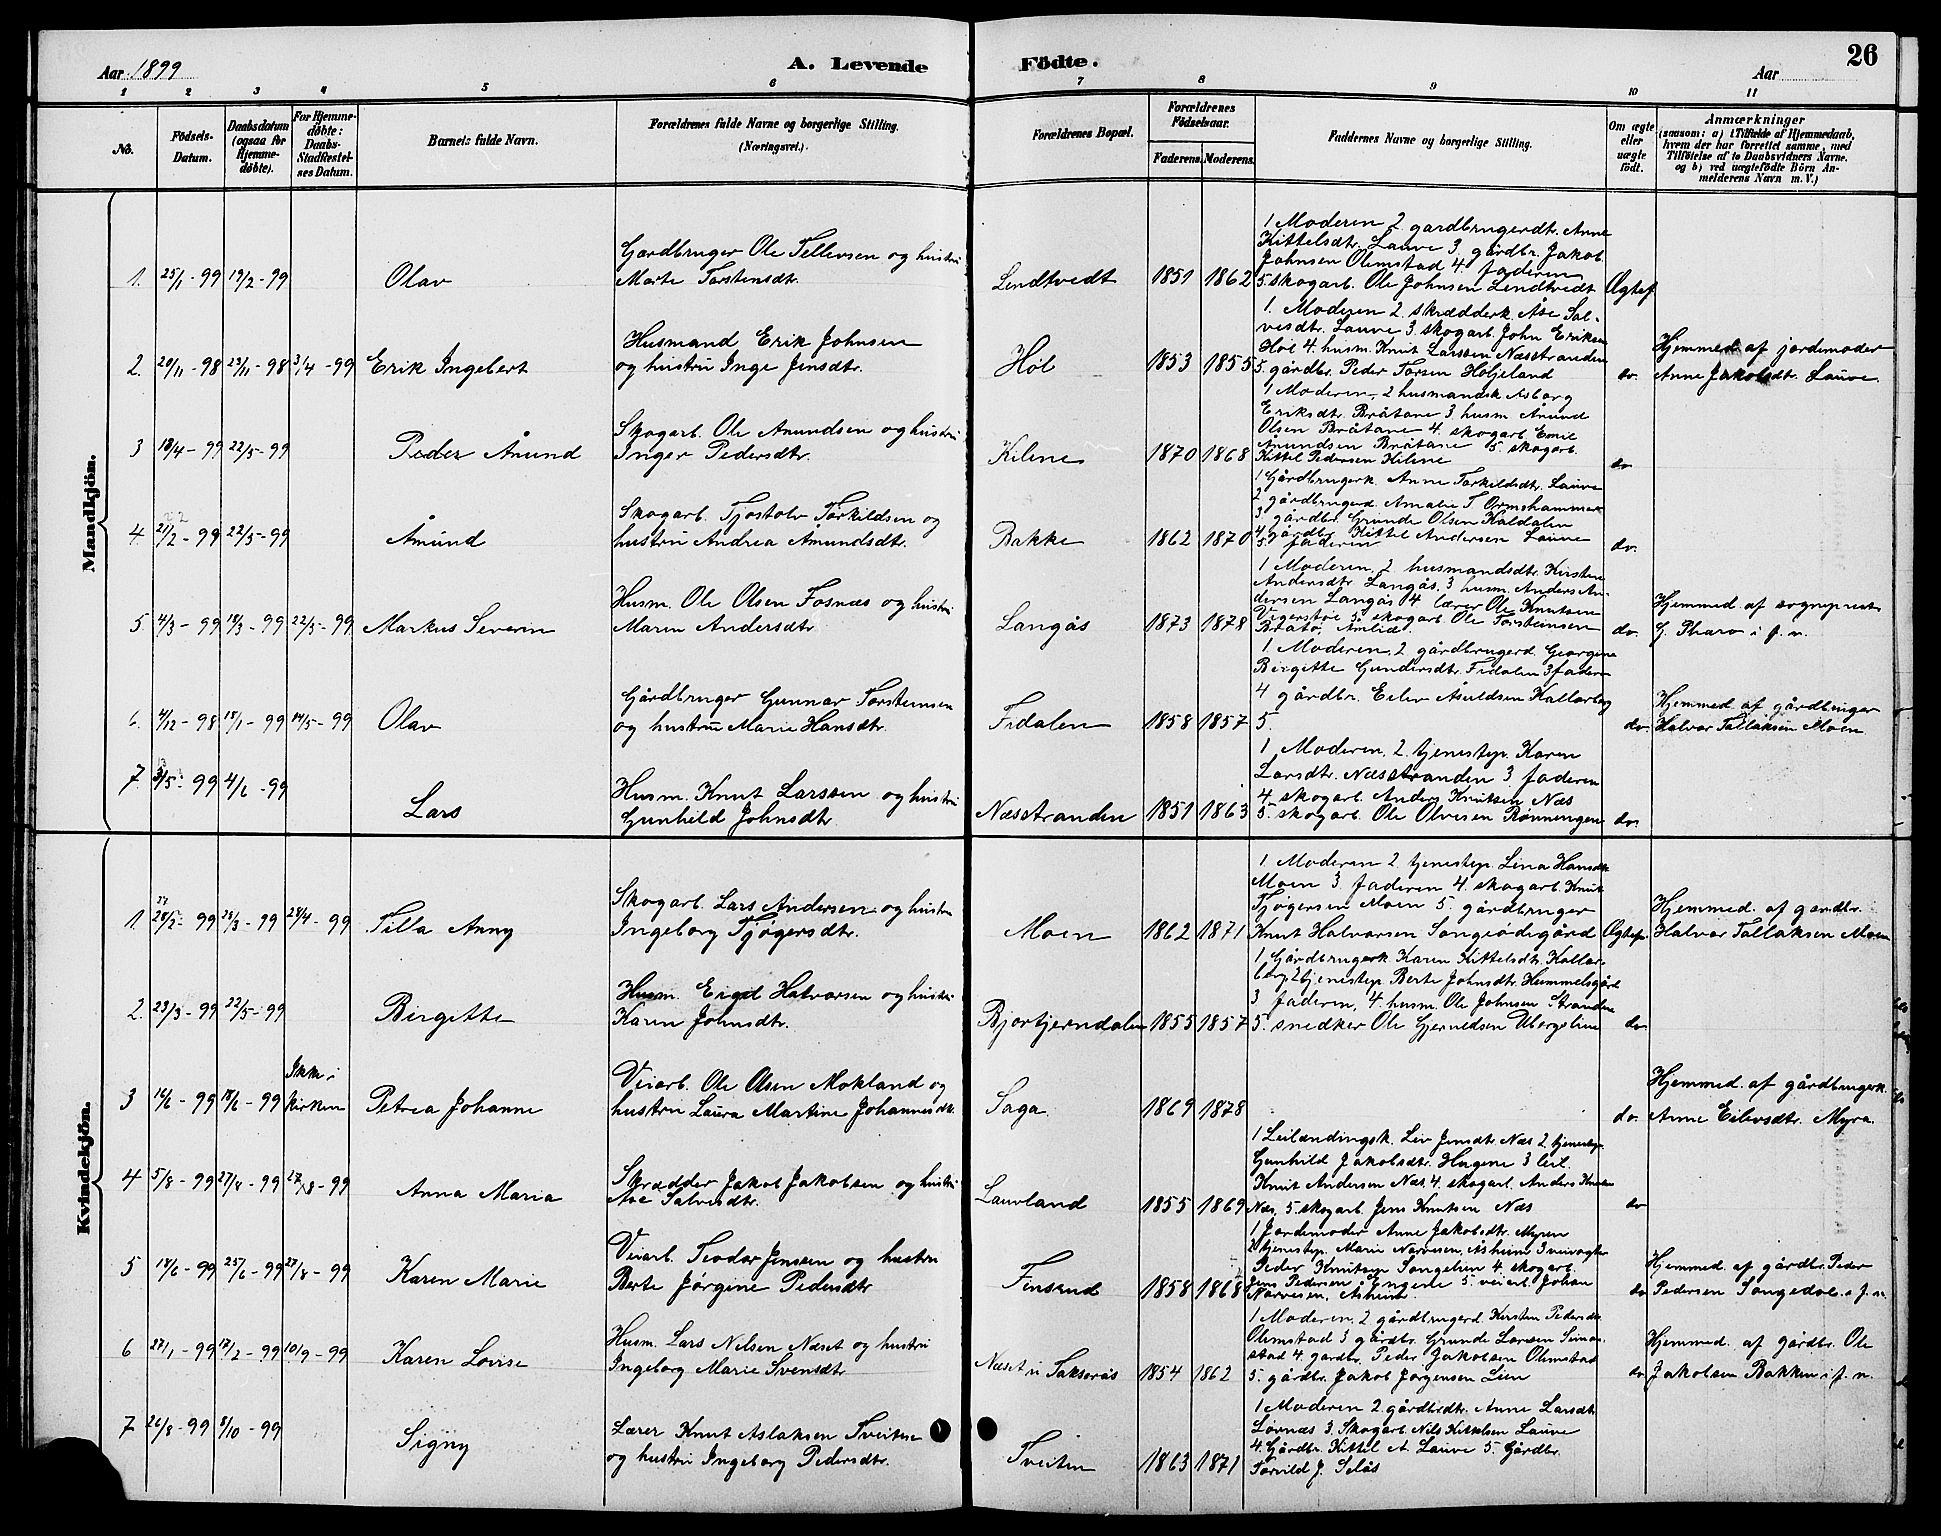 Aar 1899
A. Levende Födte.
Aar
26
1 2 3 4 5 6 7 8 9 10 11
No.
Födsels-
Datum.
Daabsdatum
(ogsaa for
Hjemme-
döbte).
For Hjemme-
döbte:
Daabs-
Stadfæstel-
ses Datum.
Barnets fulde Navn.
Forældrenes fulde Navne og borgerlige Stilling.
(Næringsvei.)
Forældrenes Bopæl.
Forældrenes
Födselsaar.
Faderens. Moderens.
Faddernes Navne og borgerlige Stilling.
Om ægte
eller
uægte
födt.
Anmærkninger
(saasom: a) i Tilfælde af Hjemmedaab,
hvem der har forrettet samme, med
Tilföielse af to Daabsvidners Navne.
og b) ved uægtefödte Börn An-
melderens Navn m. V.)
Mandkjön.
1. 25/1-99 19/2-99 Olav
Gardbruger Ole Tellevsen og hustru
Marte Torstensdtr.
Lindtvedt 1851 1862
1 Moderen 2 gardbrugerdt. Anne
Kittelsdtr. Lauve 3 gårdbr. Jakob
Johnsen Olimstad 4. faderen
5. skogarb. Ole Johnsen Lindtvedt
Ægtef.
2. 20/11-98 23/11-98 3/4-99 Erik Ingebert
Husmand Erik Johnsen
og hustru Inge Jensdtr.
Höl 1853 1855
1. Moderen 2. skrædderk. Åse Sal-
vesdtr. Lauve 3. skogarb. John Eriksen
Höl 4. husm. Knut Larssen Næsstranden
5. gårdbr. Peder Torsen Höljeland
do.
Hjemmed. af jordemoder
Anne Jakobsdtr. Lauve.
3 18/4-99 22/5-99 Peder Ånund
Skogarb. Ole Anundsen og hustru
Inger Pedersdtr.
Kilene 1870 1868
1 Moderen, 2 husmandsk. Asborg
Eriksdtr. Bråtane 3 husm. Ånund
Olsen Bråtane 4. skogarb. Emil
Ånundsen Bråtane 5. skogarb.
Kittel Pedersen Kilene
do.
4. 21/2-99 22/5-99 Åmund
Skogarb. Tjostolv Torkildsen og
hustru Andrea Åmundsdtr.
Bakke 1862 1870
1 Gårdbrugerk. Anne Torkildsdtr. Lauve
2 gårdbrugerd. Amalie T. Ormshammer
3 gårdbr. Grunde Olsen Kaldalen
4 gårdbr. Kittel Andersen Lauve
5. faderen
do.
5. 4/3-99 18/3-99 22/5-99 Markus Severin
Husm. Ole Olsen Fosnæs og hustru
Maren Andersdtr.
Langås 1873 1878
1 Moderen, 2 husmandsdtr. Kirsten
Andersdtr. Langås, 3 husm. Anders An-
dersen Langås 4 lærer Ole Knutsen
Vegerstöl 5 skogarb. Ole Torsteinsen
Bråtö, Åmlid.
do.
Hjemmed af sogneprest
G. Tharo i f. n.
6. 4/12-98 18/1-99 14/5-99 Olav
Gårdbruger Gunnar Torsteinsen
og hustru Marie Hansdtr.
Fidalen 1858 1857
1 Moderen, 2 gårdbrugerd. Georgine
Birgitte Gundersdtr. Fidalen 3 faderen
4 gårdbr. Eilev Asuldsen Kallarberg
5.
do.
Hjemmed. af gårdbruger
Halvor Tallaksen Moen
7. 3/5-99 4/6-99 Lars
Husm. Knut Larssen og hustru
Gunhild Johnsdtr.
Næsstranden 1851 1863
1. Moderen. 2. tjenestep. Karen
Larsdtr. Næsstranden 3 faderen
4. skogarb. Anders Knutsen Næs
5. skogarb. Ole Olvesen Rönningen
do.
Kvindekjön.
1. 28/2-99 25/3-99 24/4-99 Tilla Anny
Skogarb. Lars Andersen og hustru
Ingeborg Tjögersdtr.
Moen 1862 1871
1. Moderen 2. tjenestep. Lina Hansdtr
Moen 3. faderen 4. skogarb. Knut
Tjögersen Moen 5. gårdbruger
Knut Halvorsen Songeödegård
Ægtef.
Hjemmed. af gardbr.
Halvor Tallaksen Moen
2. 23/3-99 22/5-99 Birgitte
Husm. Eigil Halvorsen og hustru
Karen Johnsdtr.
Bjortjerndalen 1855 1857
1 Gårdbrugerk Karen Kittelsdtr. Kallar-
berg 2 tjenestep. Berte Johnsdtr. Hummelsgård
3 faderen, 4. husm. Ole Johnsen Strandene
5. snedker Ole Gjermundsen Ubergsline
do
3 16/6-99 18/6-99 Ikke i
kirken
Petrea Johanne
Veiarb. Ole Olsen Mokland og
hustru Laura Martine Johannesdtr.
Saga 1869 1878
do.
Hjemmed. af gårdbrugerk.
Anne Eilevsdtr. Myra.
4 5/8-99 27/8-99 27/8-99 Anna Maria
Skrædder Jakob Jakobsen og hustru
Åse Salvesdtr.
Lauvland 1855 1869
1 Leilændingsk. Liv Jensdtr. Næs 2 tjenestep
Gunhild Jakobsdtr. Hagene 3 leil.
Knut Andersen Næs. 4. skogarb. Anders Knutsen
Næs, 5. skogarb. Jens Knutsen Næs
do
5 18/6-99 25/6-99 27/8-99 Karen Marie
Veiarb. Teodor Jensen og hustru
Berte Jörgine Pedersdtr
Finsrud 1858 1868
1 Jordemoder Anne Jakobsdtr. Myren
2 tjenestep. Marie Narvesen, Åsheim 3 veivogter
Peder Knutsen Songelien 4. skogarb.
Jens Pedersen Engene 5. veiarb. Johan
Narvesen, Åsheim
do
Hjemmed. af gårdbr. Peder
Pedersen Songedal i f. n.
6 27/1-99 12/2-99 10/9-99 Karen Lovise
Husm. Lars Nilsen Næset og hustru
Ingeborg Marie Svensdtr
Næset u. Sakserås 1854 1862
1 Moderen, 2 gårdbrugerd. Kirsten Pedersdtr
Olimstad 3 gårdbr. Grunde Larsen Simon-
stad 4. gardbr. Peder Jakobsen Olimstad
5. gårdbr. Jakob Jörgensen Lien
do
Hjemmed. af gårdbr. Ole
Jakobsen Bakken i f. n.
7 26/8-99 8/10-99 Signy
Lærer Knut Aslaksen Tveiten
og hustru Ingeborg Pedersdtr.
Tveiten 1863 1871
1 Moderen 2. gårdbrdtr. Anne Larsdtr
Lövnæs 3. Skogarb. Nils Kittelsen Lauve
4. Gårdbr. Kittel A. Lauve 5. Gårdbr.
Torvild J. Selås